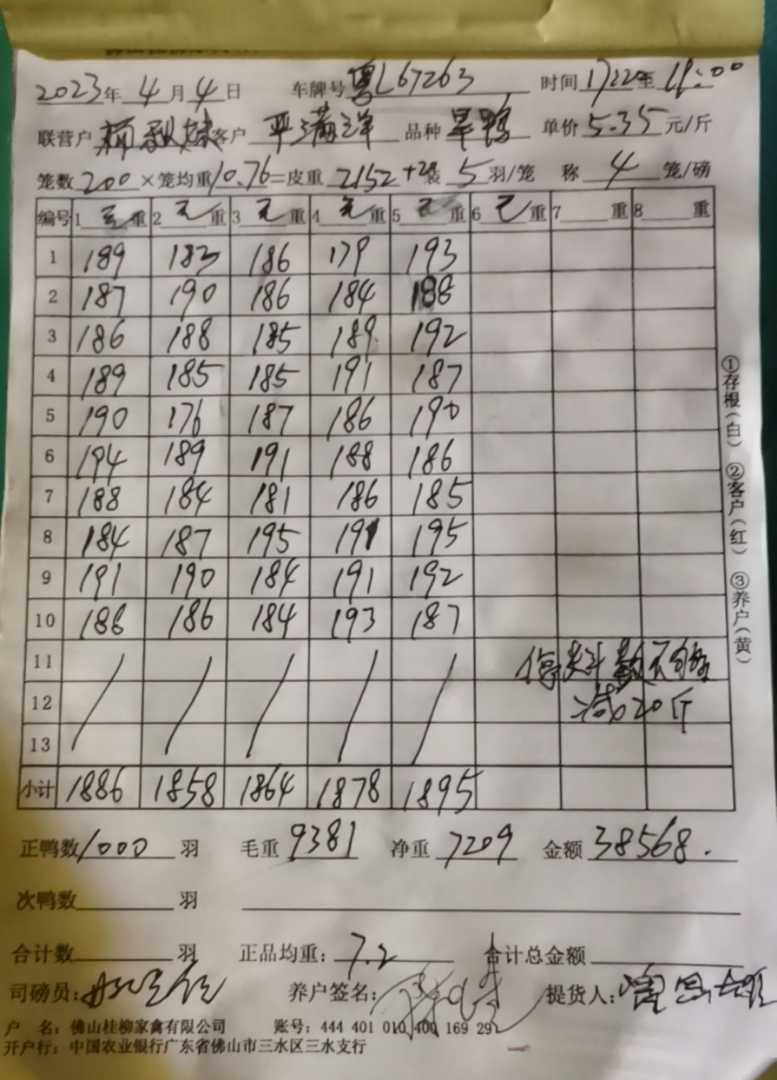 2023年 4月 4日 车牌号 粤L67263 时间 1722至 18:00
联营户 客户 平满洋 品种 旱鸭 单价 5.35 元/斤
笼数 200 ×笼均重 10.76 =皮重 2152 +20 装 5 羽/笼 称 4 笼/磅
编号 1 重 2 重 3 重 4 重 5 重 6 重 7 重 8 重
1 189 183 186 179 193
2 187 190 186 184 188
3 186 188 185 189 192
4 189 185 185 191 187
5 190 176 187 186 190
6 194 189 191 188 186
7 188 184 181 186 185
8 184 187 195 191 195
9 191 190 184 191 192
10 188 186 184 193 187
11 停料
12 减20斤
13
小计 1886 1858 1864 1878 1895
正鸭数 1000 羽 毛重 9381 净重 7209 金额 38568.
次鸭数 羽
合计数 羽 正品均重: 7.2 合计总金额
司磅员: 养户签名: 提货人:
户 名: 佛山桂柳家禽有限公司 账号: 444 401 010 400 169 29
开户行: 中国农业银行广东省佛山市三水区三水支行
①存根(白) ②客户(红) ③养户(黄)